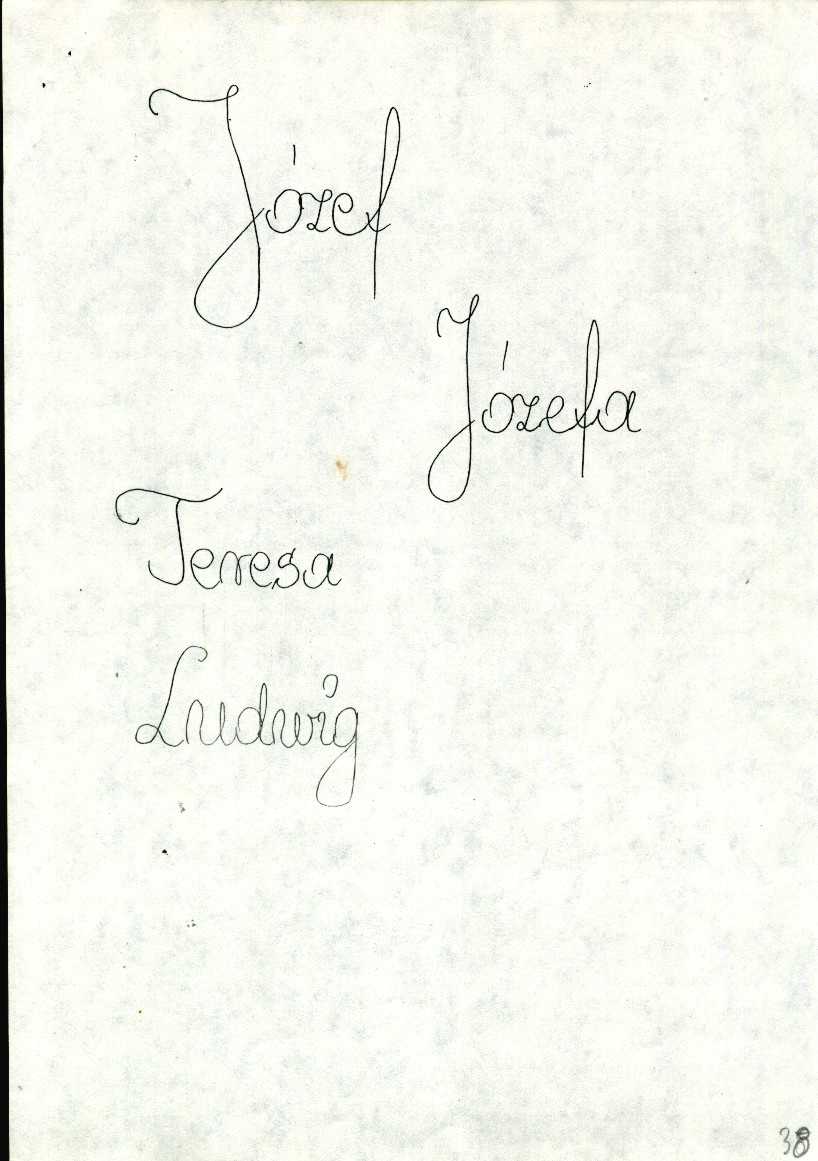 Józef
Józefa
Teresa
Ludwig
38